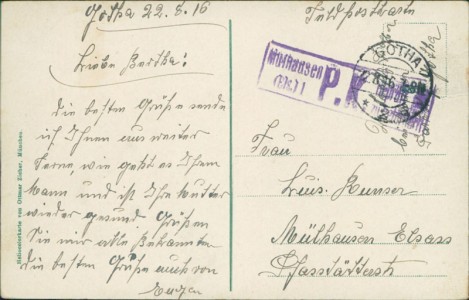 Gotha 22.8.16
Liebe Bertha!
Die besten Grüße sende
ich Ihnen aus weiter
Ferne, wie geht es Ihrem
Mann und ist Ihre Mutter
wieder gesund. Grüßen
Sie mir alle Bekannten
die besten Grüße auch von
Eugen
Feldpostkarte
Mülhausen
(Els.)
P.K.
GOTHA
Frau
Luis.
Mülhausen Elsass
Pfastätterstr